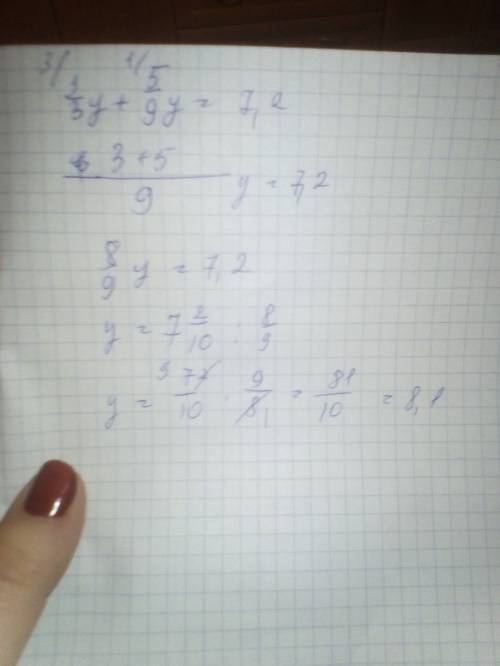 3/ 1/
1/3 y + 5/9 y = 7,2
(3+5)/9 y = 7,2
8/9 y = 7,2
y = 7 2/10 : 8/9
y = 9 72/10 · 9/8 1 = 81/10 = 8,1